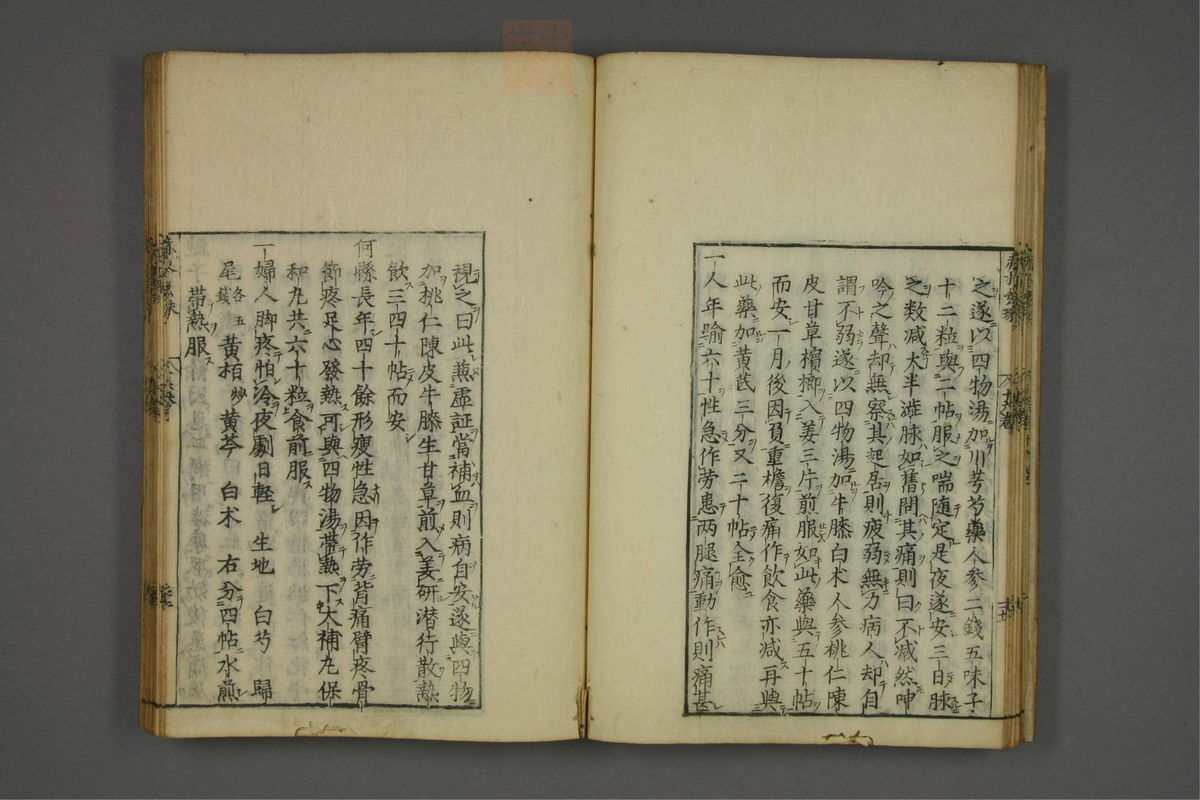 之遂以四物湯加川芎芍藥人参二錢五味子
十二粒與二帖服之喘随定是夜遂安三日脉
之数减大半澁脉如舊問其痛則曰不减然呻
吟之聲却無察其起居則疲弱無力病人却自
謂不弱遂以四物湯加牛膝白术人参桃仁陳
皮甘草檳榔入姜三片煎服如此藥與五十帖
而安一月後因負重檐復痛作飲食亦减再與
此藥加黄芪三分又二十帖全愈
一人年踰六十性急作劳患两腿痛動作則痛甚
視之曰此兼虚証當補血則病自安遂與四物
加桃仁陳皮牛膝生甘草煎入姜研潜行散熱
飲三四十帖而安
何縣長年四十餘形瘦性急因作劳背痛臂疼骨
節疼足心發熱可與四物湯帶熱下大補丸保
和丸共六十粒食前服
一婦人脚疼怕冷夜劇日軽 生地 白芍 歸
尾各五錢 黄栢炒 黄芩 白术 右分四帖水煎
帶熱服